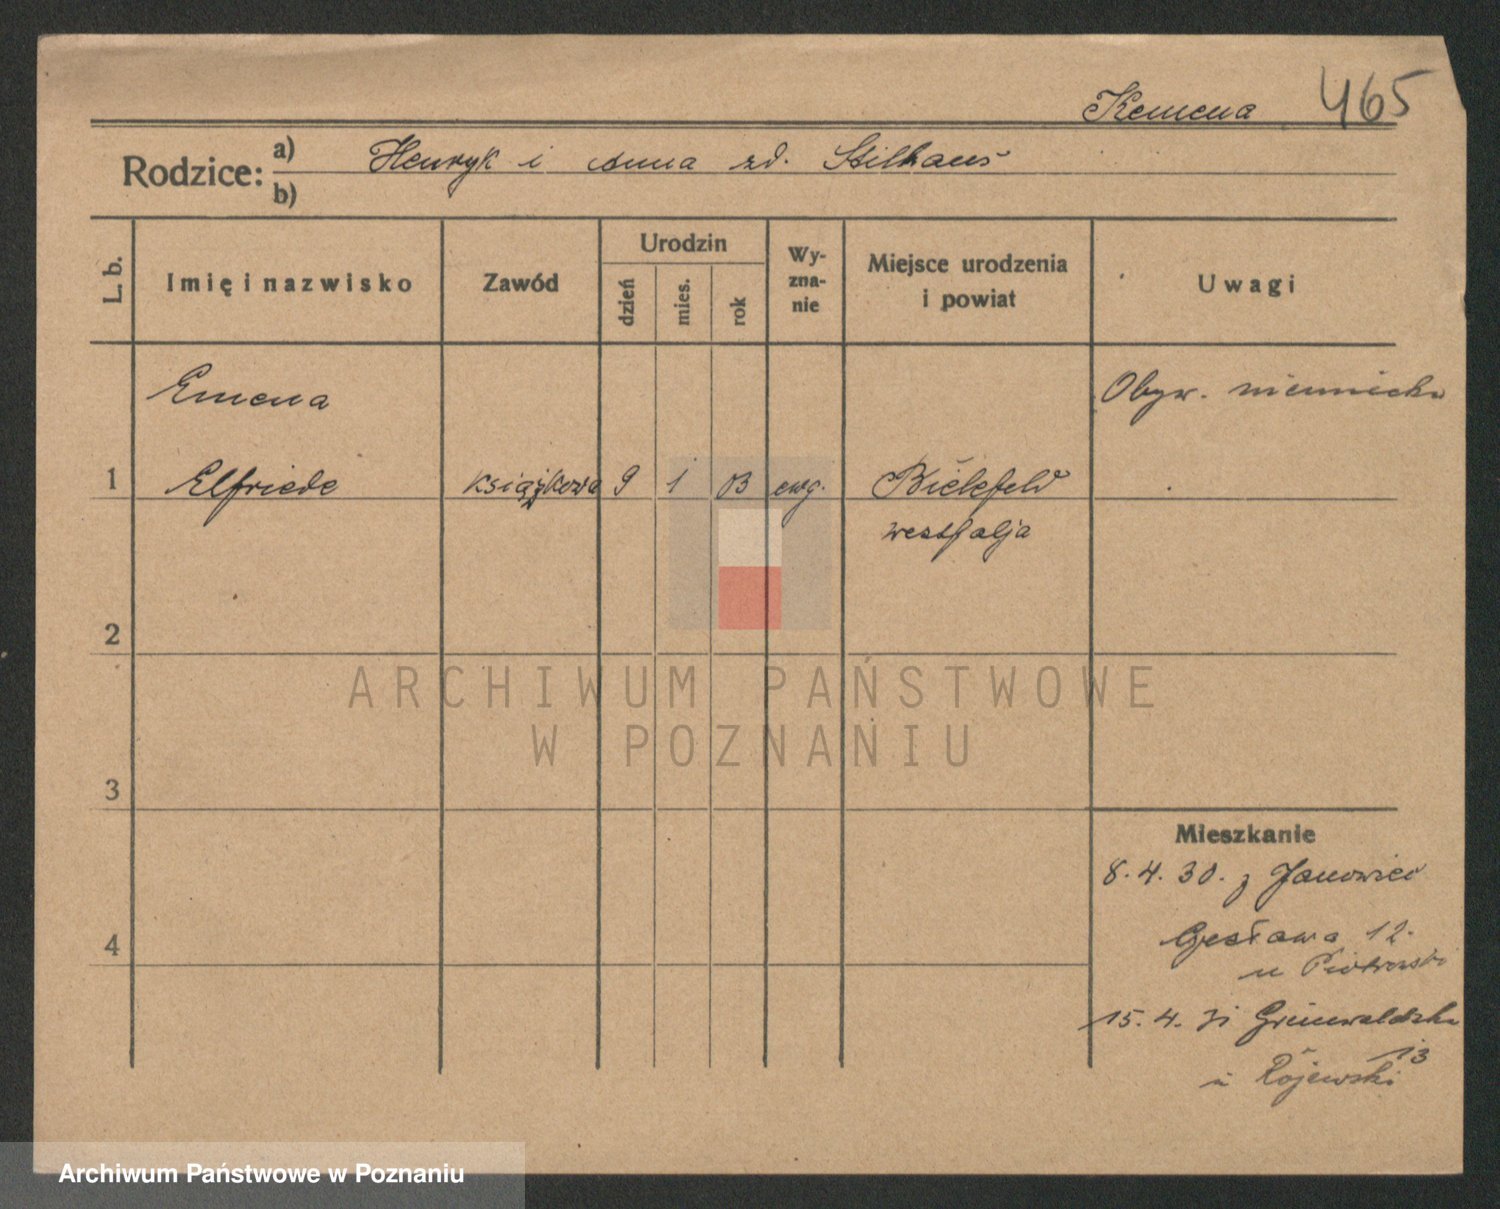 Kemena 465
Rodzice: a) Henryk i Anna zd. Stilhaus
b)
L. b.
Imię i nazwisko
Zawód
Urodzin
dzień
mies.
rok
Wy-
zna-
nie
Miejsce urodzenia
i powiat
Uwagi
Emena
Obyw. niemiecka
1 Elfriede książkowa 9 1 03 ewg. Bielefeld
westfalja
2
ARCHIWUM PAŃSTWOWE
W POZNANIU
3
Mieszkanie
8.4.30. z Janowiec
4
Czesława 12.
u Piotrowski
15.4.31 Grunwaldzka
13
u Rojewski
Archiwum Państwowe w Poznaniu